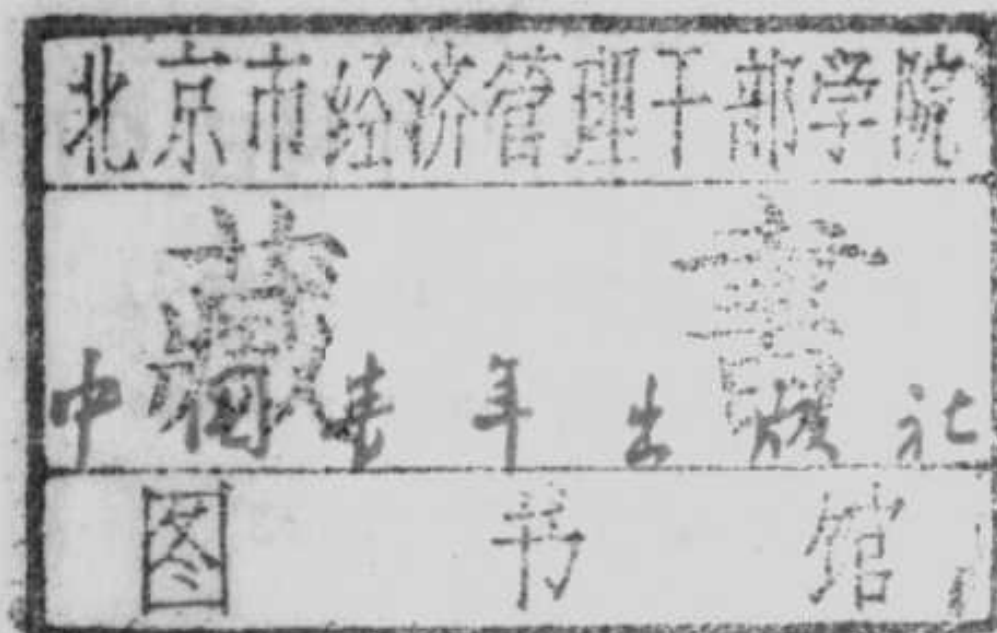 北京市经济管理干部学院
藏 書
中国青年出版社
图 书 馆